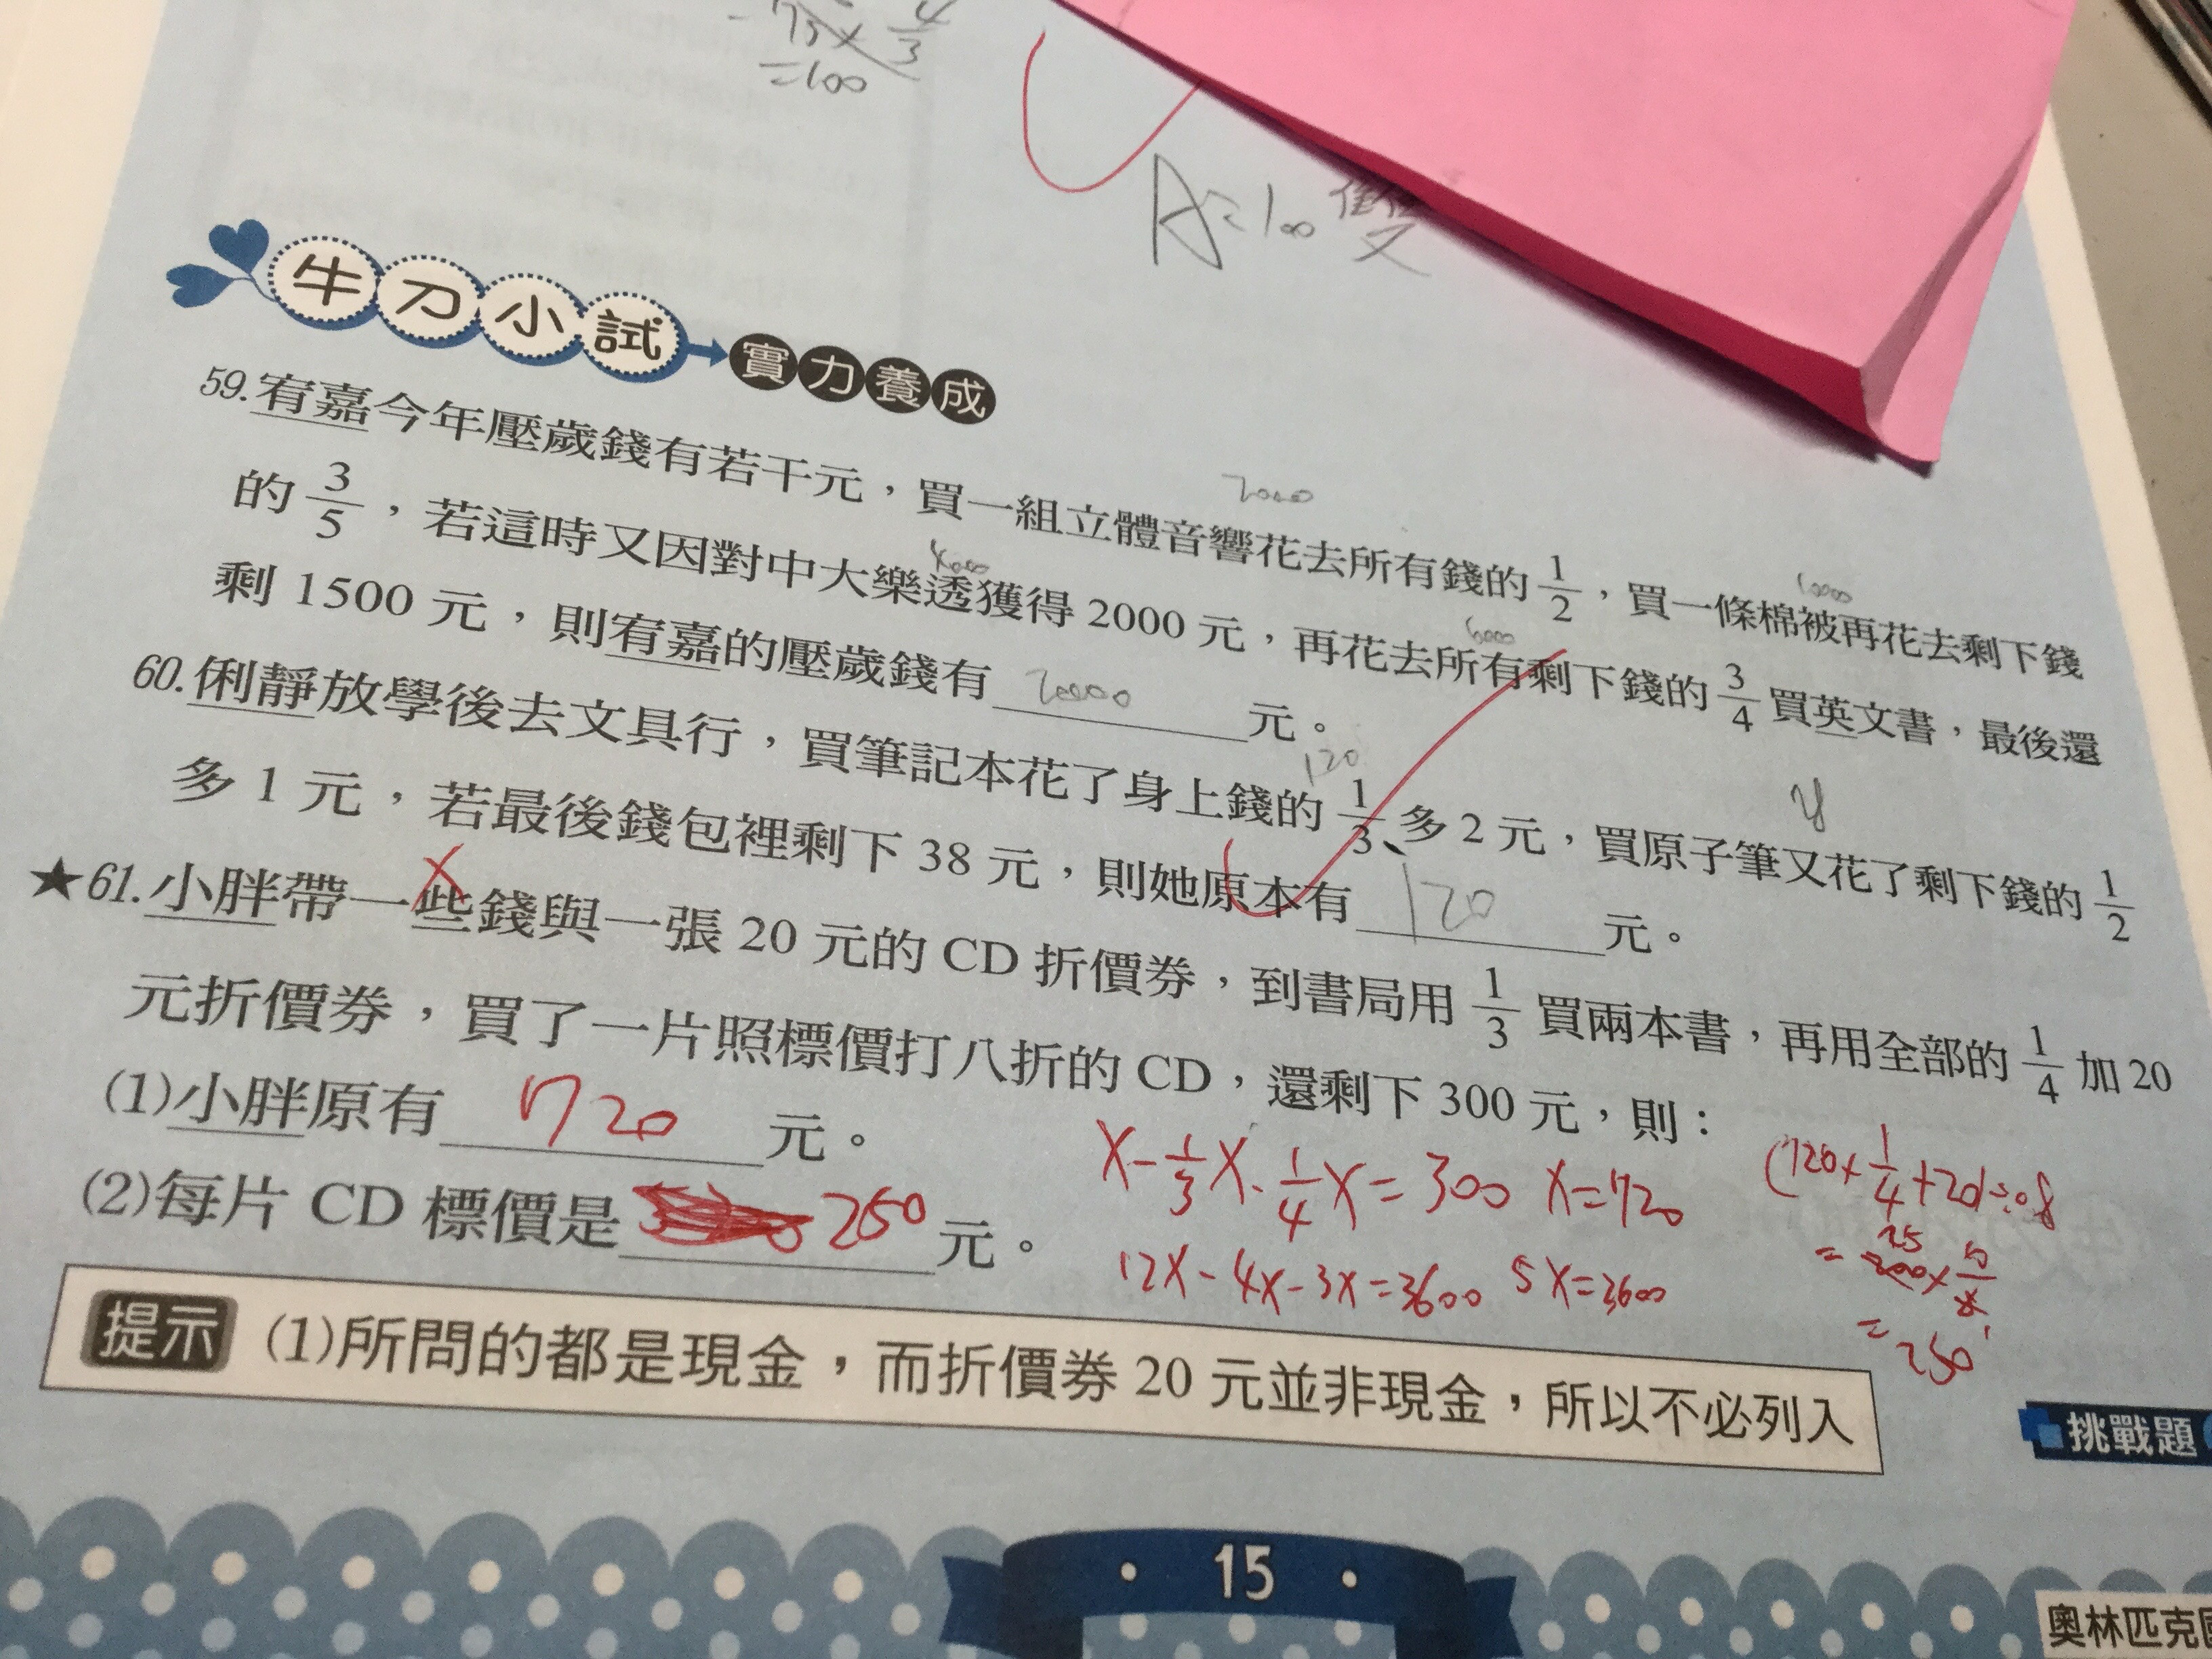 =100
A=100雙
牛刀小試 實力養成
2000
59.宥嘉今年壓歲錢有若干元，買一組立體音響花去所有錢的1/2，買一條棉被再花去剩下錢
4000
10000
的3/5，若這時又因對中大樂透獲得2000元，再花去所有剩下錢的3/4買英文書，最後還
6000
剩1500元，則宥嘉的壓歲錢有20000元。
120
60.俐靜放學後去文具行，買筆記本花了身上錢的1/3多2元，買原子筆又花了剩下錢的1/2
y
多1元，若最後錢包裡剩下38元，則她原本有120元。
x
★61.小胖帶一些錢與一張20元的CD折價券，到書局用1/3買兩本書，再用全部的1/4加20
元折價券，買了一片照標價打八折的CD，還剩下300元，則：
(1)小胖原有720元。
x-1/3x-1/4x=300 x=720
(720×1/4+20)÷0.8
(2)每片CD標價是250元。
12x-4x-3x=3600 5x=3600
=250
提示 (1)所問的都是現金，而折價券20元並非現金，所以不必列入
挑戰題
·15·
奧林匹克